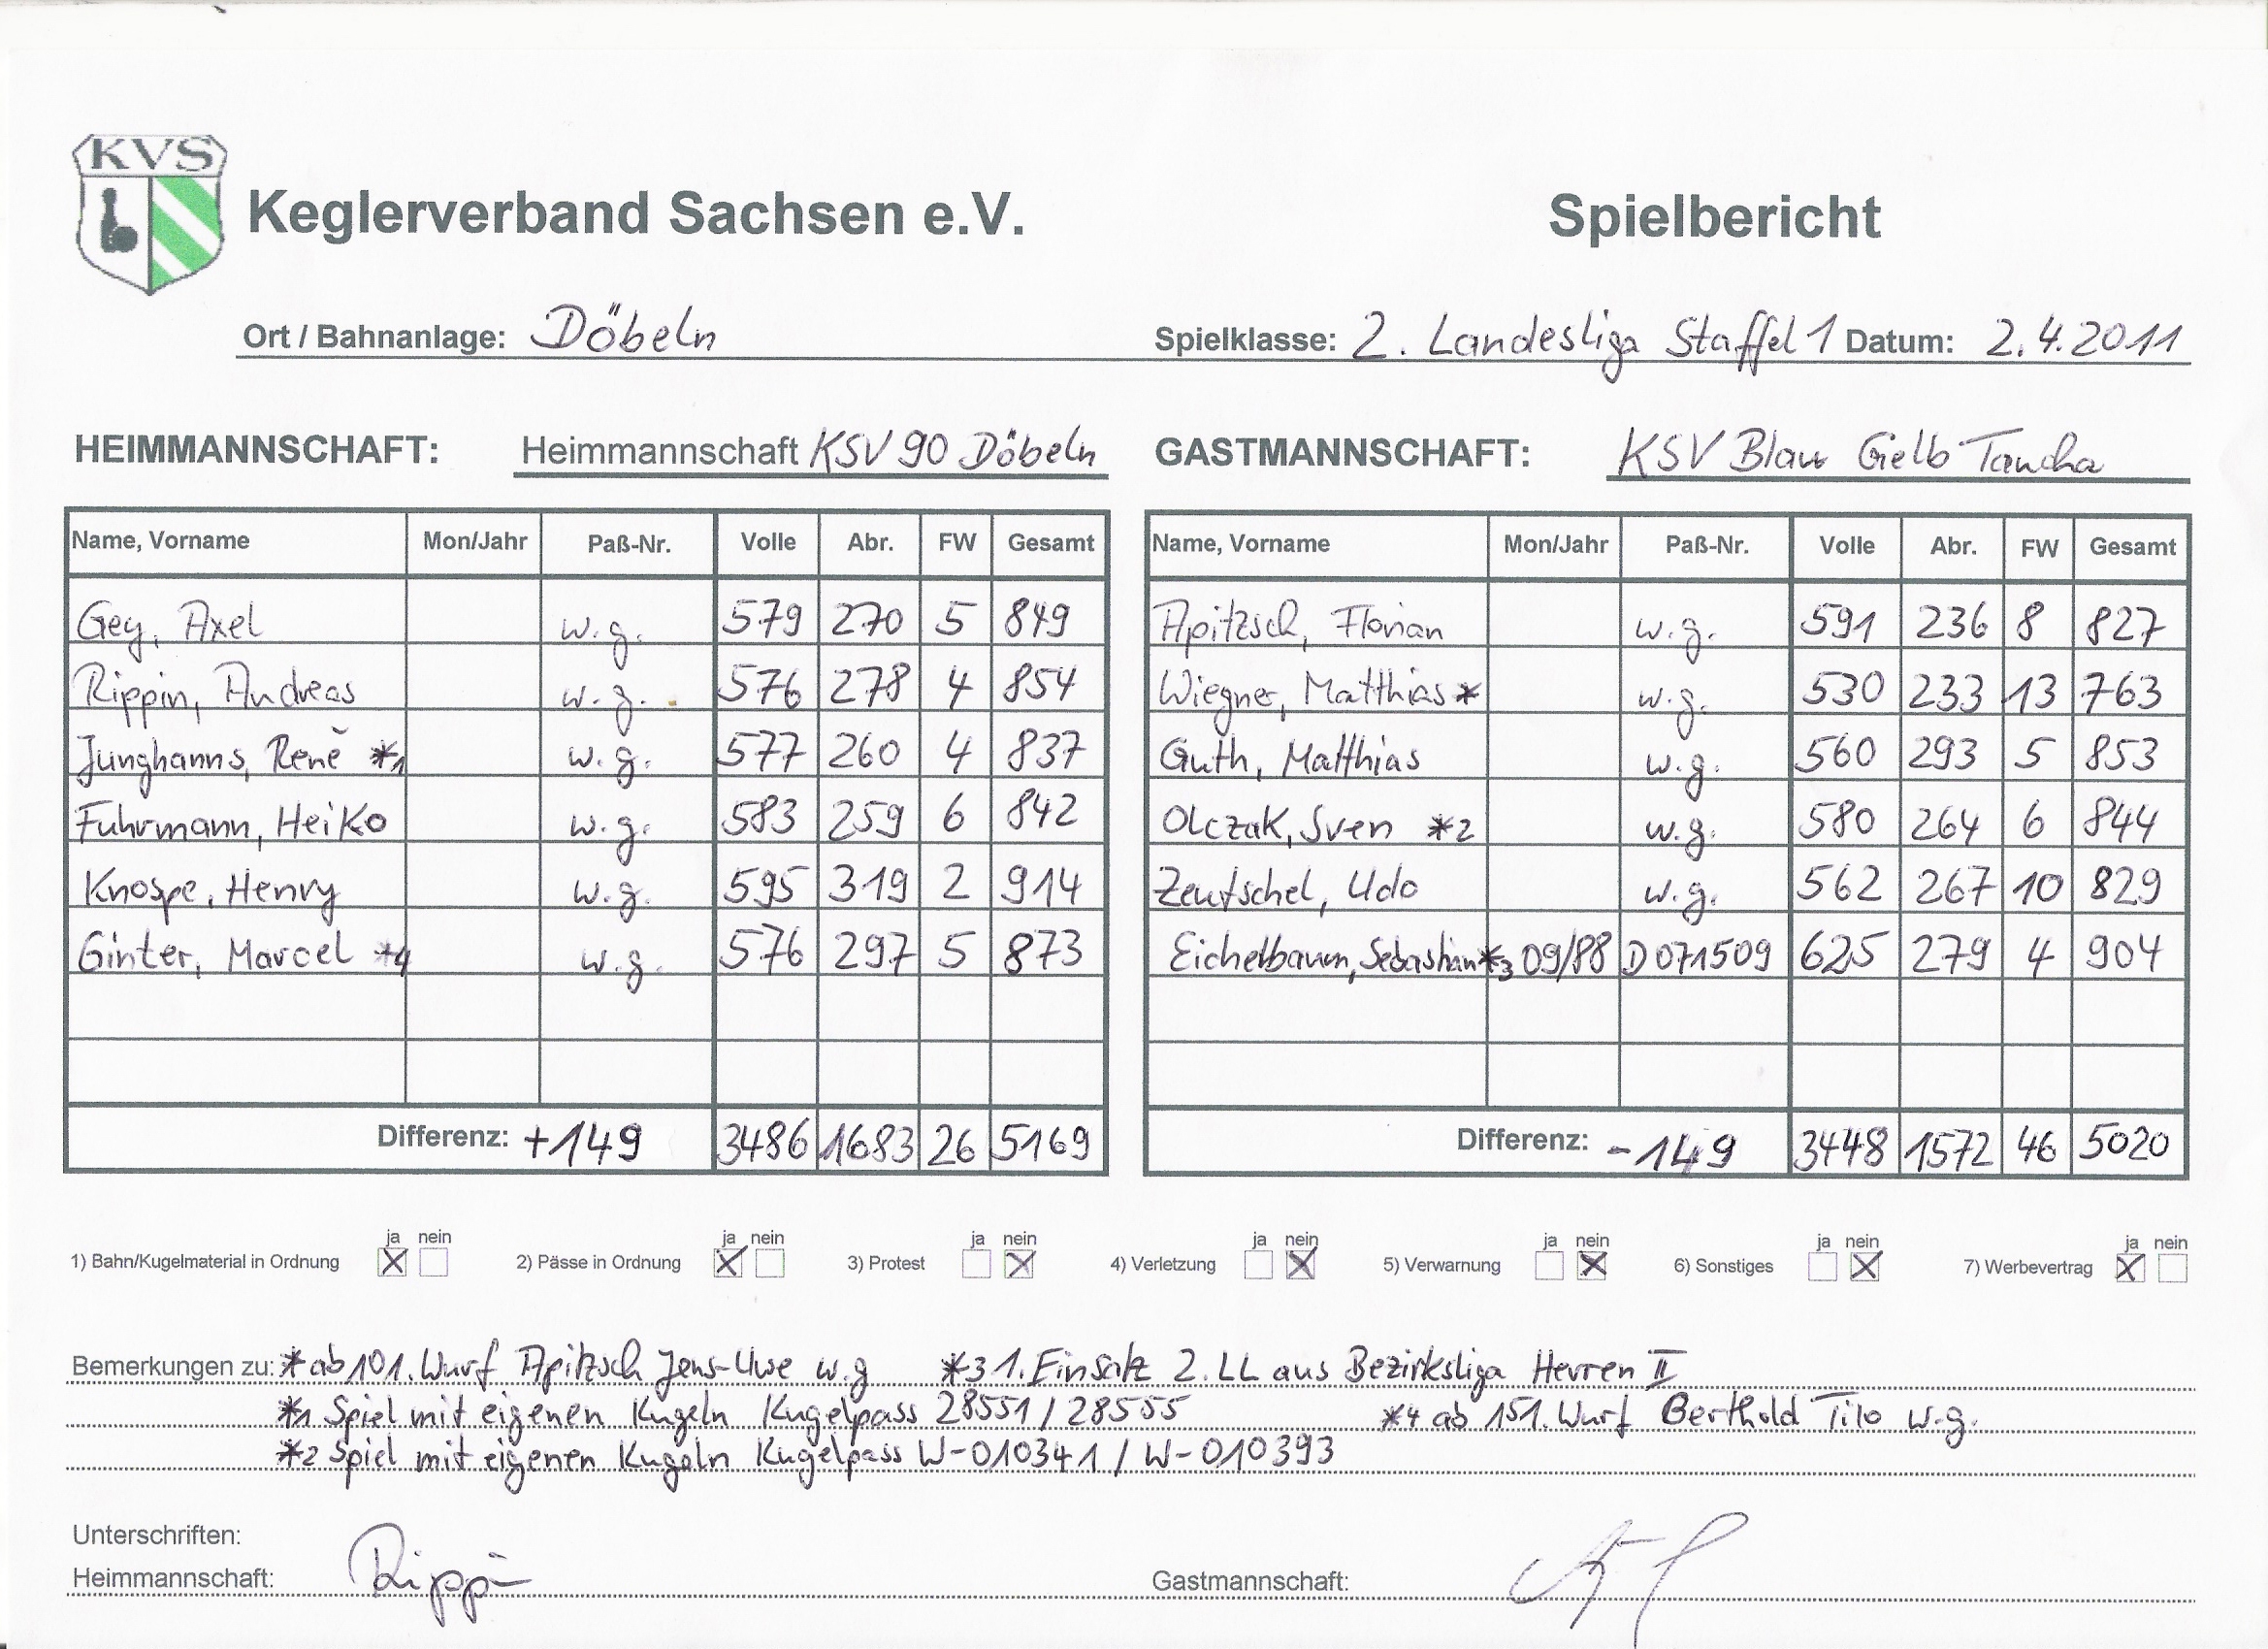 KVS
Keglerverband Sachsen e.V. Spielbericht
Ort / Bahnanlage: Döbeln Spielklasse: 2. Landesliga Staffel 1 Datum: 2.4.2011
HEIMMANNSCHAFT: Heimmannschaft KSV 90 Döbeln GASTMANNSCHAFT: KSV Blau Gelb Taucha
Name, Vorname Mon/Jahr Paß-Nr. Volle Abr. FW Gesamt Name, Vorname Mon/Jahr Paß-Nr. Volle Abr. FW Gesamt
Gey, Axel w.g. 579 270 5 849 Apitzsch, Florian w.g. 591 236 8 827
Rippin, Andreas w.g. 576 278 4 854 Wiegner, Matthias * w.g. 530 233 13 763
Junghanns, René *1 w.g. 577 260 4 837 Guth, Matthias w.g. 560 293 5 853
Fuhrmann, Heiko w.g. 583 259 6 842 Olczak, Sven *2 w.g. 580 264 6 844
Knospe, Henry w.g. 595 319 2 914 Zeutschel, Udo w.g. 562 267 10 829
Ginter, Marcel *4 w.g. 576 297 5 873 Eichelbaum, Sebastian *3 09/88 D071509 625 279 4 904
Differenz: +149 3486 1683 26 5169 Differenz: -149 3448 1572 46 5020
ja nein ja nein ja nein ja nein ja nein ja nein ja nein
1) Bahn/Kugelmaterial in Ordnung 2) Pässe in Ordnung 3) Protest 4) Verletzung 5) Verwarnung 6) Sonstiges 7) Werbevertrag
Bemerkungen zu: * ab 101. Wurf Apitzsch Jens-Uwe w.g *3 1. Einsatz 2. LL aus Bezirksliga Herren II
*1 Spiel mit eigenen Kugeln Kugelpass 28551 / 28555 *4 ab 151. Wurf Berthold Tilo w.g.
*2 Spiel mit eigenen Kugeln Kugelpass W-010341 / W-010393
Unterschriften:
Heimmannschaft: Rippin Gastmannschaft: